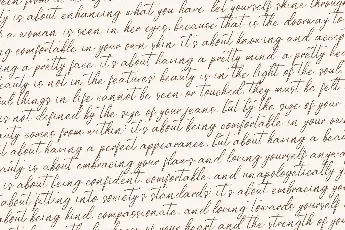 ty is about enhancing what you have. let yourself shine through
a woman is seen in her eyes, because that is the doorway to
ng comfortable in your own skin. it's about knowing and accep
ng a pretty face. it's about having a pretty mind. a pretty hea
eauty is not in the features; beauty is in the light of the soul
ul things in life cannot be seen or touched; they must be felt
is not defined by the size of your jeans, but by the size of your
auty comes from within. it's about being comfortable in your own
t about having a perfect appearance, but about having a beau
auty is about embracing your flaws and loving yourself anyway
is about being confident, comfortable, and unapologetically y
about fitting into society's standards; it's about embracing you
about being kind, compassionate, and loving towards yourself
of your heart and the strength of you